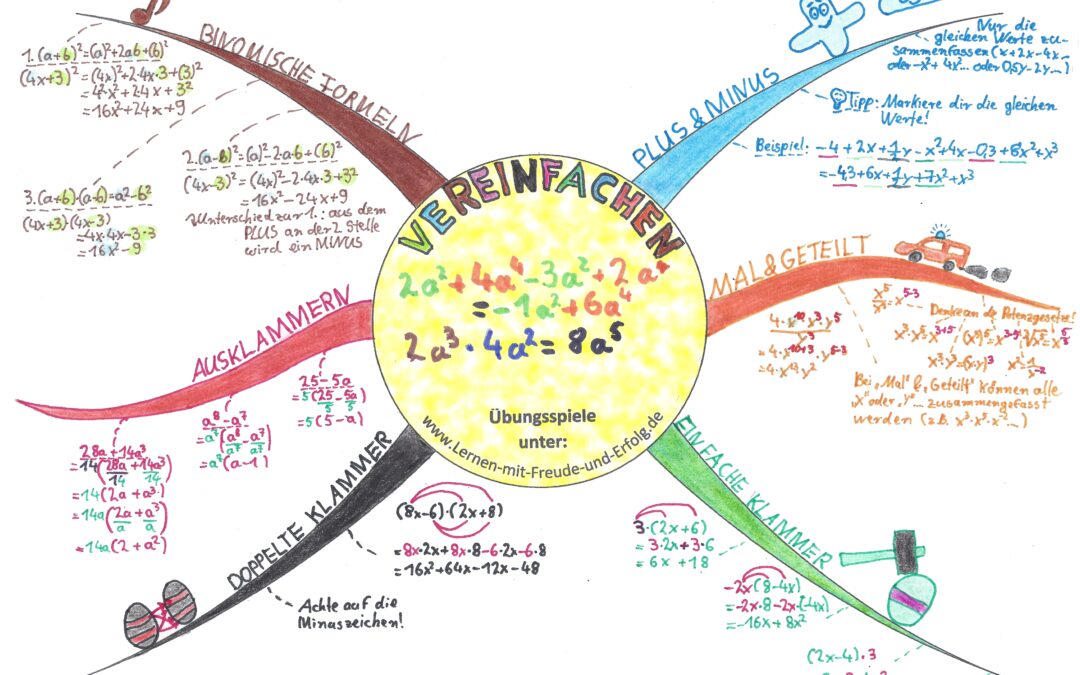 VEREINFACHEN
2a²+4a⁴-3a²+2a⁴
=-1a²+6a⁴
2a³·4a²=8a⁵
Übungsspiele
unter:
www.Lernen-mit-Freude-und-Erfolg.de
BINOMISCHE FORMELN
1.(a+b)²=(a)²+2ab+(b)²
(4x+3)²=(4x)²+2·4x·3+(3)²
=4²x²+24x+3²
=16x²+24x+9
2.(a-b)²=(a)²-2·a·b+(b)²
(4x-3)²=(4x)²-2·4x·3+3²
=16x²-24x+9
Unterschied zur 1.: aus dem
PLUS an der 2. Stelle
wird ein MINUS
3.(a+b)·(a-b)=a²-b²
(4x+3)·(4x-3)
=4x·4x-3·3
=16x²-9
PLUS & MINUS
Nur die
gleichen Werte zu-
sammenfassen (x+2x-4x...
oder -x²+4x²... oder 0,5y-2y...)
Tipp: Markiere dir die gleichen
Werte!
Beispiel: -4+2x+1y-x²+4x-0,3+8x²+x³
=-4,3+6x+1y+7x²+x³
MAL & GETEILT
x⁵/x³=x⁵⁻³
Denke an die Potenzgesetze!
x³·x⁵=x³⁺⁵
x³·y³=(x·y)³
4·x¹⁰·y³·y⁵
=4·x¹⁰⁺³·y⁵⁻³
=4·x¹³·y²
Bei „Mal" & „Geteilt" können alle
„x" oder „y"... zusammengefasst
werden (z.B. x³·x⁵·x⁻²...)
AUSKLAMMERN
25-5a
=5(25/5-5a/5)
=5(5-a)
a⁸-a⁷
=a⁷(a⁸/a⁷-a⁷/a⁷)
=a⁷(a-1)
28a+14a³
=14(28a/14+14a³/14)
=14(2a+a³)
=14a(2a/a+a³/a)
=14a(2+a²)
DOPPELTE KLAMMER
(8x-6)·(2x+8)
=8x·2x+8x·8-6·2x-6·8
=16x²+64x-12x-48
Achte auf die
Minuszeichen!
EINFACHE KLAMMER
3·(2x+6)
=3·2x+3·6
=6x+18
-2x(8-4x)
=-2x·8-2x·(-4x)
=-16x+8x²
(2x-4)·3